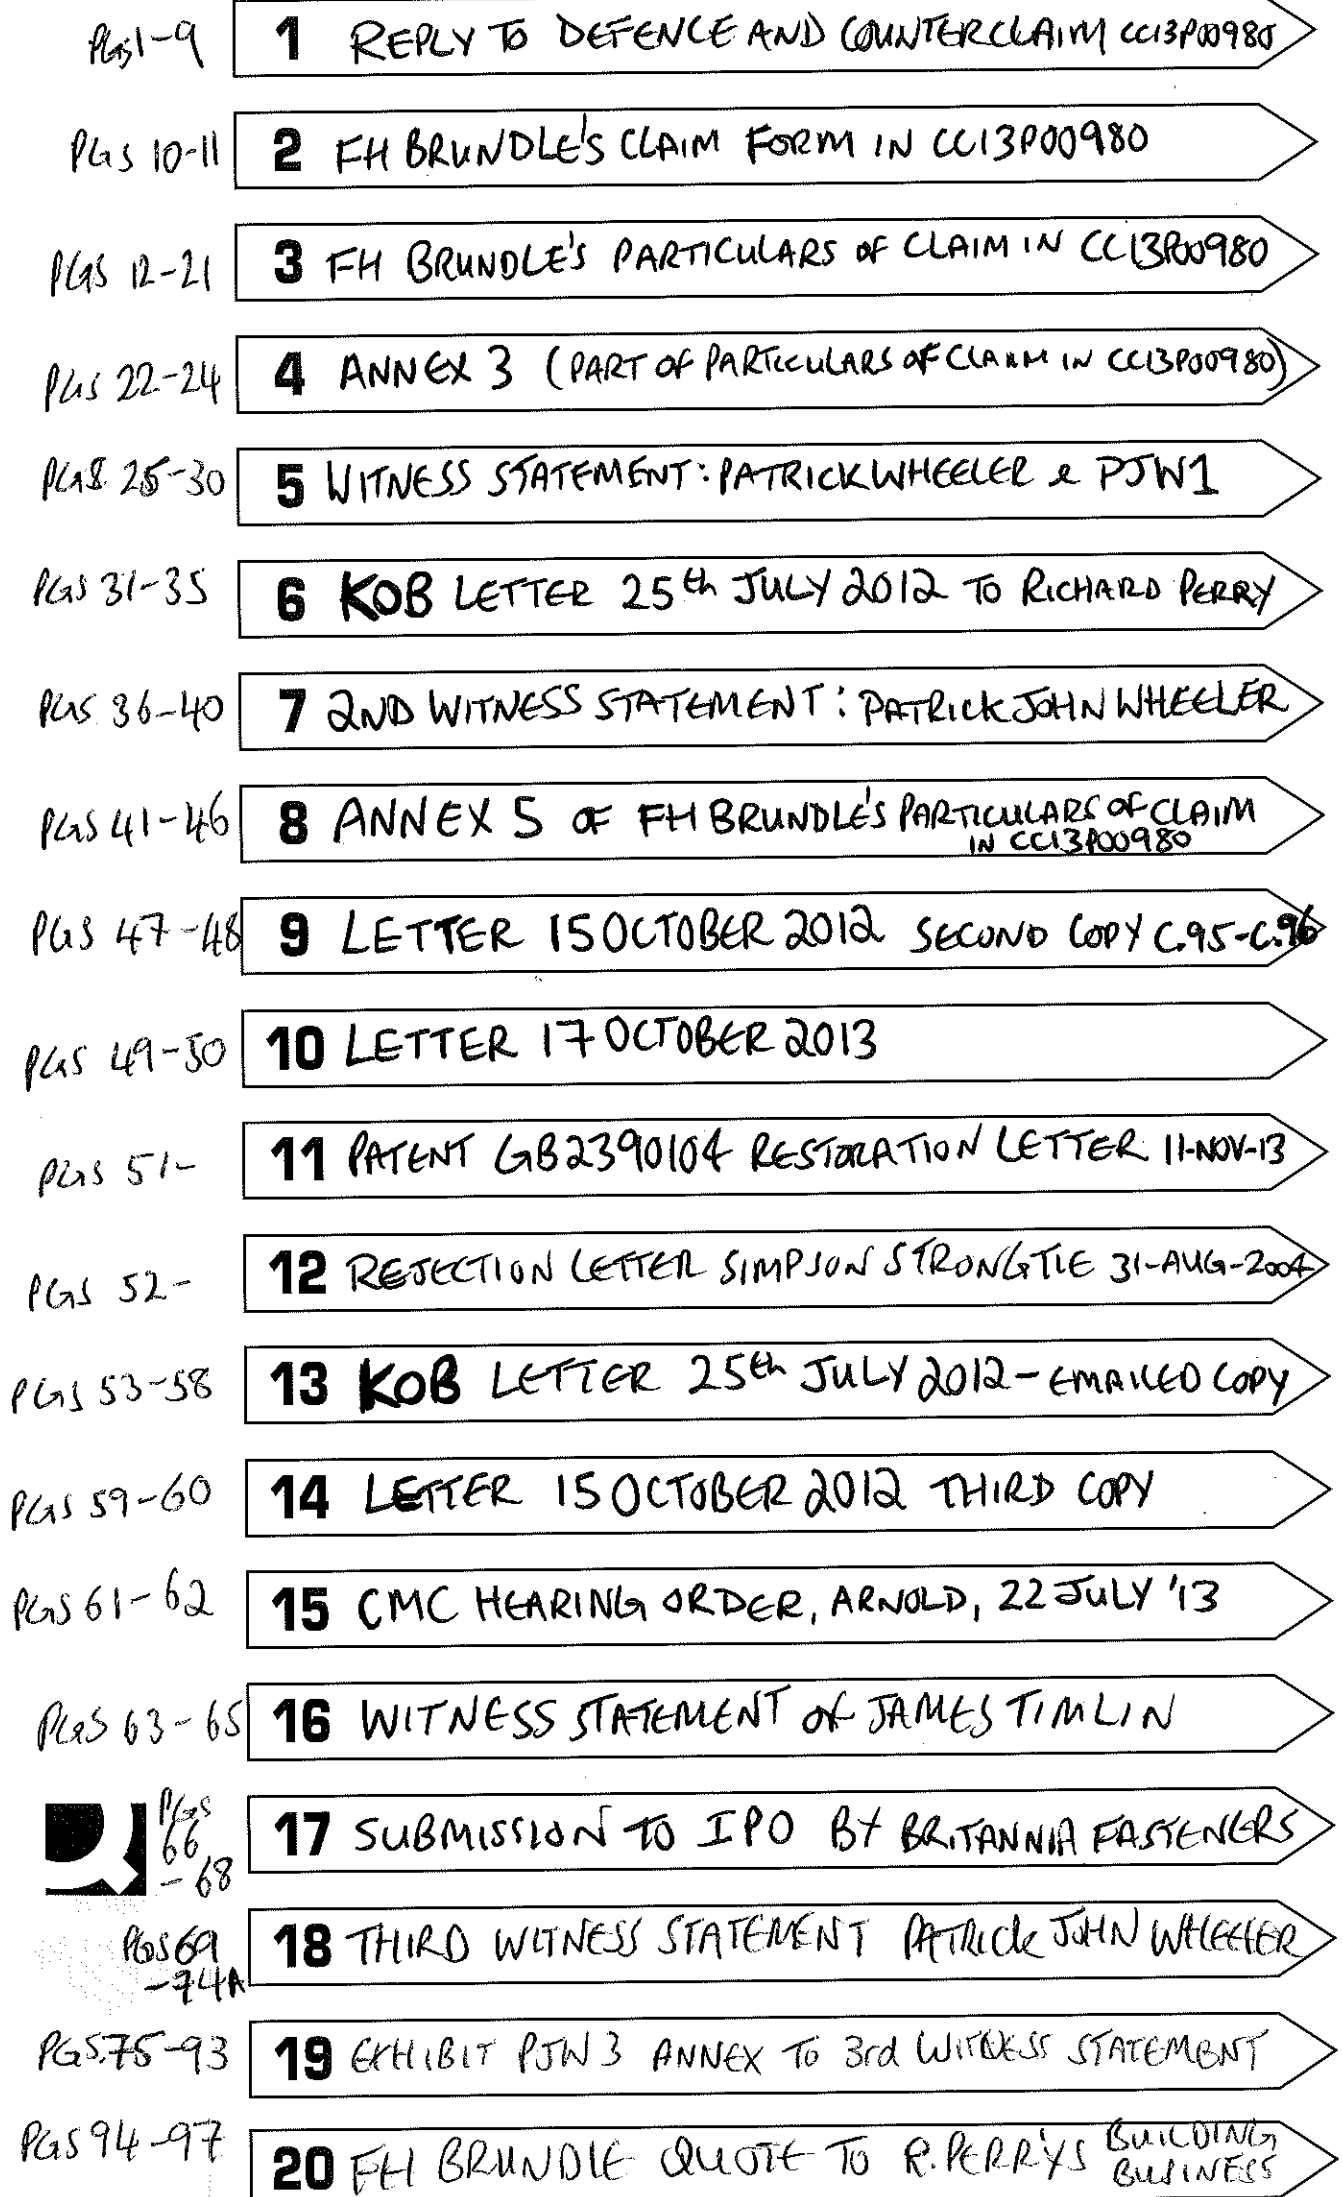 PGS 1-9 1 REPLY TO DEFENCE AND COUNTERCLAIM CC13P00980
PGS 10-11 2 FH BRUNDLE'S CLAIM FORM IN CC13P00980
PGS 12-21 3 FH BRUNDLE'S PARTICULARS OF CLAIM IN CC13P00980
PGS 22-24 4 ANNEX 3 (PART OF PARTICULARS OF CLAIM IN CC13P00980)
PGS 25-30 5 WITNESS STATEMENT: PATRICK WHEELER & PJW1
PGS 31-35 6 KOB LETTER 25th JULY 2012 TO RICHARD PERRY
PGS 36-40 7 2ND WITNESS STATEMENT: PATRICK JOHN WHEELER
PGS 41-46 8 ANNEX 5 OF FH BRUNDLE'S PARTICULARS OF CLAIM
IN CC13P00980
PGS 47-48 9 LETTER 15 OCTOBER 2012 SECOND COPY C.95-C.96
PGS 49-50 10 LETTER 17 OCTOBER 2013
PGS 51- 11 PATENT GB2390104 RESTORATION LETTER 11-NOV-13
PGS 52- 12 REJECTION LETTER SIMPSON STRONGTIE 31-AUG-2004
PGS 53-58 13 KOB LETTER 25th JULY 2012 - EMAILED COPY
PGS 59-60 14 LETTER 15 OCTOBER 2012 THIRD COPY
PGS 61-62 15 CMC HEARING ORDER, ARNOLD, 22 JULY '13
PGS 63-65 16 WITNESS STATEMENT OF JAMES TIMLIN
PGS
66
-68
17 SUBMISSION TO IPO BY BRITANNIA FASTENERS
PGS 69
-74A
18 THIRD WITNESS STATEMENT PATRICK JOHN WHEELER
PGS.75-93 19 EXHIBIT PJW3 ANNEX TO 3rd WITNESS STATEMENT
PGS 94-97 20 FH BRUNDLE QUOTE TO R. PERRY'S BUILDING
BUSINESS